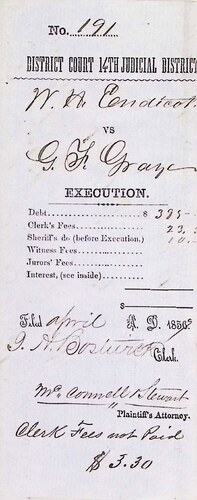 No. 191
DISTRICT COURT 14TH JUDICIAL DISTRICT
W. H. Endicot
VS
G. F. Gray
EXECUTION.
Debt $ 395
Clerk's Fees 23.
Sheriff's do (before Execution.) 10.
Witness Fees
Jurors' Fees
Interest, (see inside)
$
Filed April A. D. 185
Clerk.
McConnell & Stewart
Plaintiff's Attorney.
Clerk Fees not Paid
$ 3.30